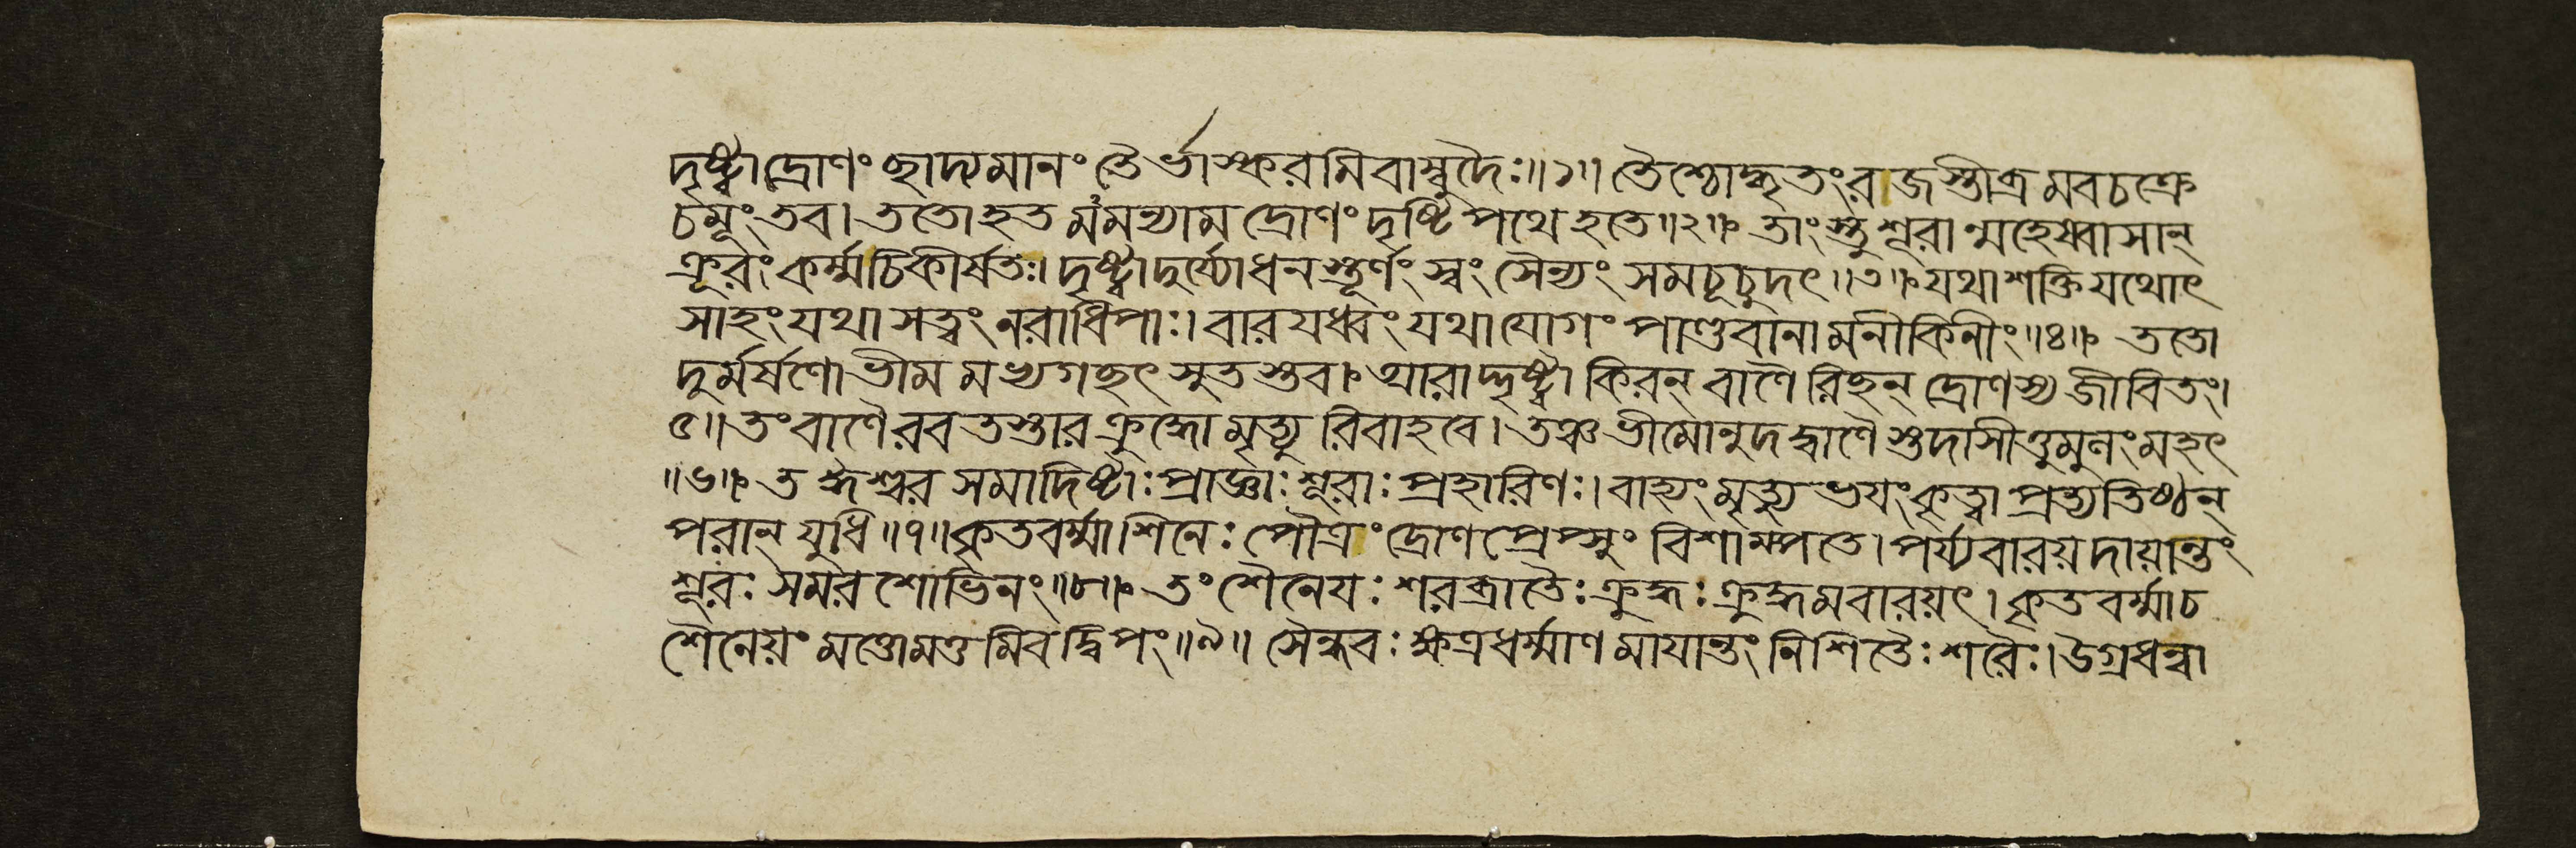 দৃষ্ট্বা দ্রোণং ছাদ্যমানং তৈর্ভাস্করমিবাম্বুদৈঃ॥১॥ তৈশ্চোদ্ধূতংরজস্তীব্রমবচক্রে
চমূং তব। ততো হতমমন্যাম দ্রোণং দৃষ্টিপথে হতে॥২॥ তাংস্তু শূরান্মহেষ্বাসান্
ক্রূরং কর্ম্মচিকীর্ষতঃ। দৃষ্ট্বা দুর্য্যোধনস্তূর্ণং স্বং সৈন্যং সমচূচুদৎ॥৩॥ যথাশক্তি যথোৎ
সাহং যথা সত্বং নরাধিপাঃ। বারযধ্বং যথাযোগং পাণ্ডবানামনীকিনীং॥৪॥ ততো
দুর্মর্ষণো ভীমমভ্যগছৎ সুতস্তব। আরাদ্দৃষ্ট্বা কিরন্ বাণৈরিছন্ দ্রোণস্য জীবিতং।
৫॥ তং বাণৈরবতস্তার ক্রুদ্ধো মৃত্যুরিবাহবে। তঞ্চ ভীমোনুদদ্বাণৈস্তদাসীত্তুমুনং মহৎ
॥৬॥ ত ঈশ্বরসমাদিষ্টাঃ প্রাজ্ঞাঃ শূরাঃ প্রহারিণঃ। বাহ্যং মৃত্যুভযং কৃত্বা প্রত্যতিষ্ঠন্
পরান্ যুধি॥৭॥ কৃতবর্ম্মা শিনেঃ পৌত্রং দ্রোণপ্রেপ্সুং বিশাম্পতে। পর্য্যবারয়দায়ান্তং
শূরঃ সমরশোভিনং॥৮॥ তং শৈনেযঃ শরব্রাতৈঃ ক্রুদ্ধঃ ক্রুদ্ধমবারয়ৎ। কৃতবর্ম্মা চ
শৈনেয়ং মত্তোমত্তমিবদ্বিপং॥৯॥ সৈন্ধবঃ ক্ষত্রধর্ম্মাণমাযান্তং নিশিতৈঃ শরৈঃ। উগ্রধন্বা